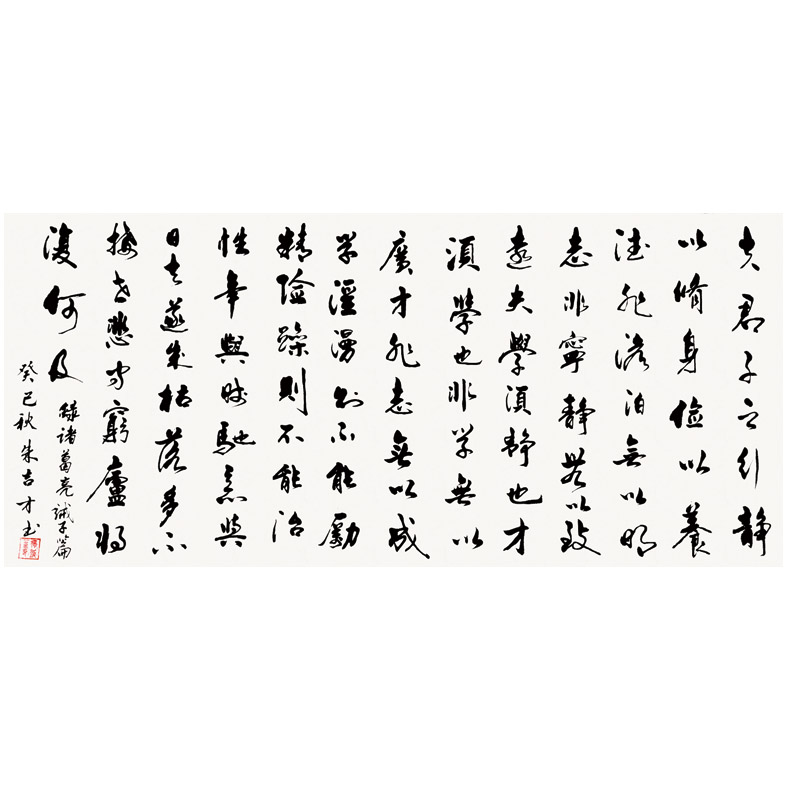 夫君子之行静
以脩身儉以養
德非澹泊無以明
志非寧静無以致
遠夫學須静也才
須學也非学無以
廣才非志無以成
学淫漫則不能勵
精險躁則不能治
性年與時馳意與
日去遂成枯落多不
接世悲守窮廬将
復何及
録诸葛亮诫子篇
癸巳秋朱吉才书